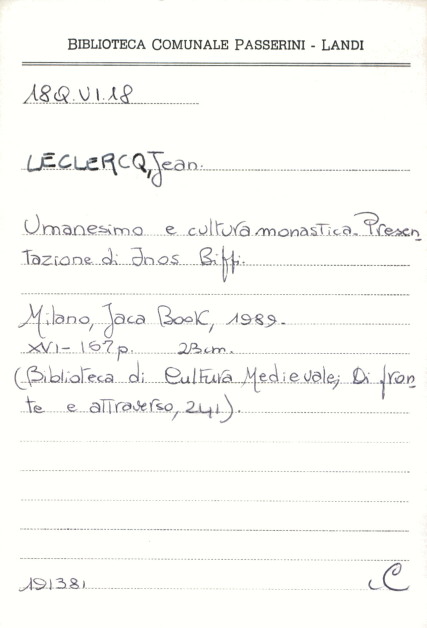 BIBLIOTECA COMUNALE PASSERINI - LANDI
18Q.VI.18
LECLERCQ, Jean.
Umanesimo e cultura monastica. Presen
tazione di Inos Biffi.
Milano, Jaca Book, 1989.
XVI- 167p. 23cm.
(Biblioteca di Cultura Medievale; Di fron
te e attraverso, 241).
191381 C